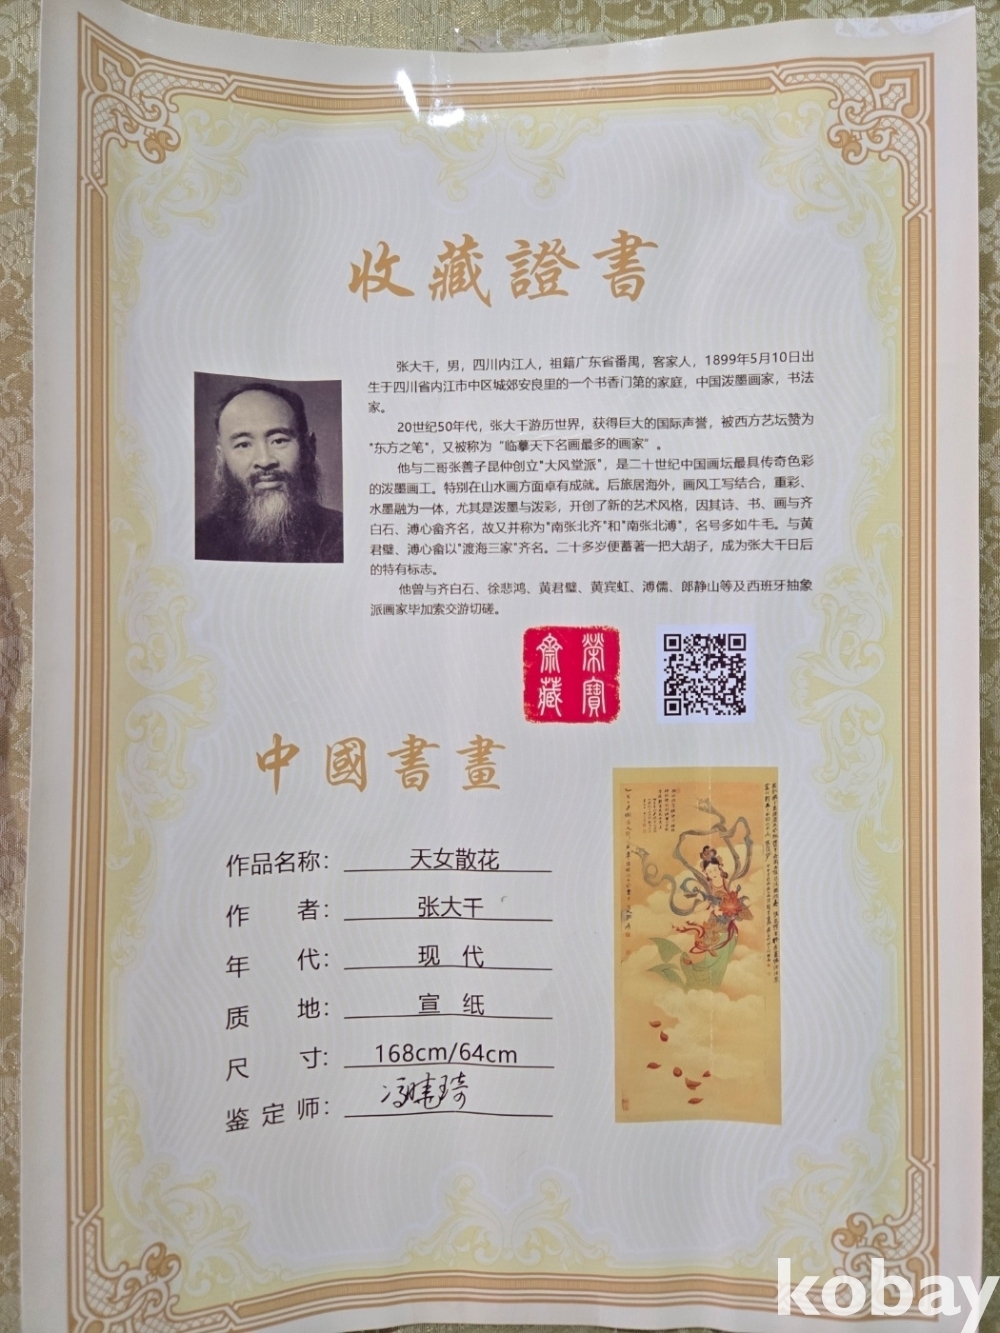 收藏證書
张大千，男，四川内江人，祖籍广东省番禺，客家人，1899年5月10日出
生于四川省内江市中区城郊安良里的一个书香门第的家庭，中国泼墨画家，书法
家。
20世纪50年代，张大千游历世界，获得巨大的国际声誉，被西方艺坛赞为
"东方之笔"，又被称为“临摹天下名画最多的画家”。
他与二哥张善子昆仲创立"大风堂派"，是二十世纪中国画坛最具传奇色彩
的泼墨画工。特别在山水画方面卓有成就。后旅居海外，画风工写结合，重彩、
水墨融为一体，尤其是泼墨与泼彩，开创了新的艺术风格，因其诗、书、画与齐
白石、溥心畬齐名，故又并称为"南张北齐"和"南张北溥"，名号多如牛毛。与黄
君璧、溥心畬以"渡海三家"齐名。二十多岁便蓄著一把大胡子，成为张大千日后
的特有标志。
他曾与齐白石、徐悲鸿、黄君璧、黄宾虹、溥儒、郎静山等及西班牙抽象
派画家毕加索交游切磋。
榮寶
齋藏
中國書畫
作品名称：天女散花
作者：张大千
年代：现代
质地：宣纸
尺寸：168cm/64cm
鉴定师：
kobay